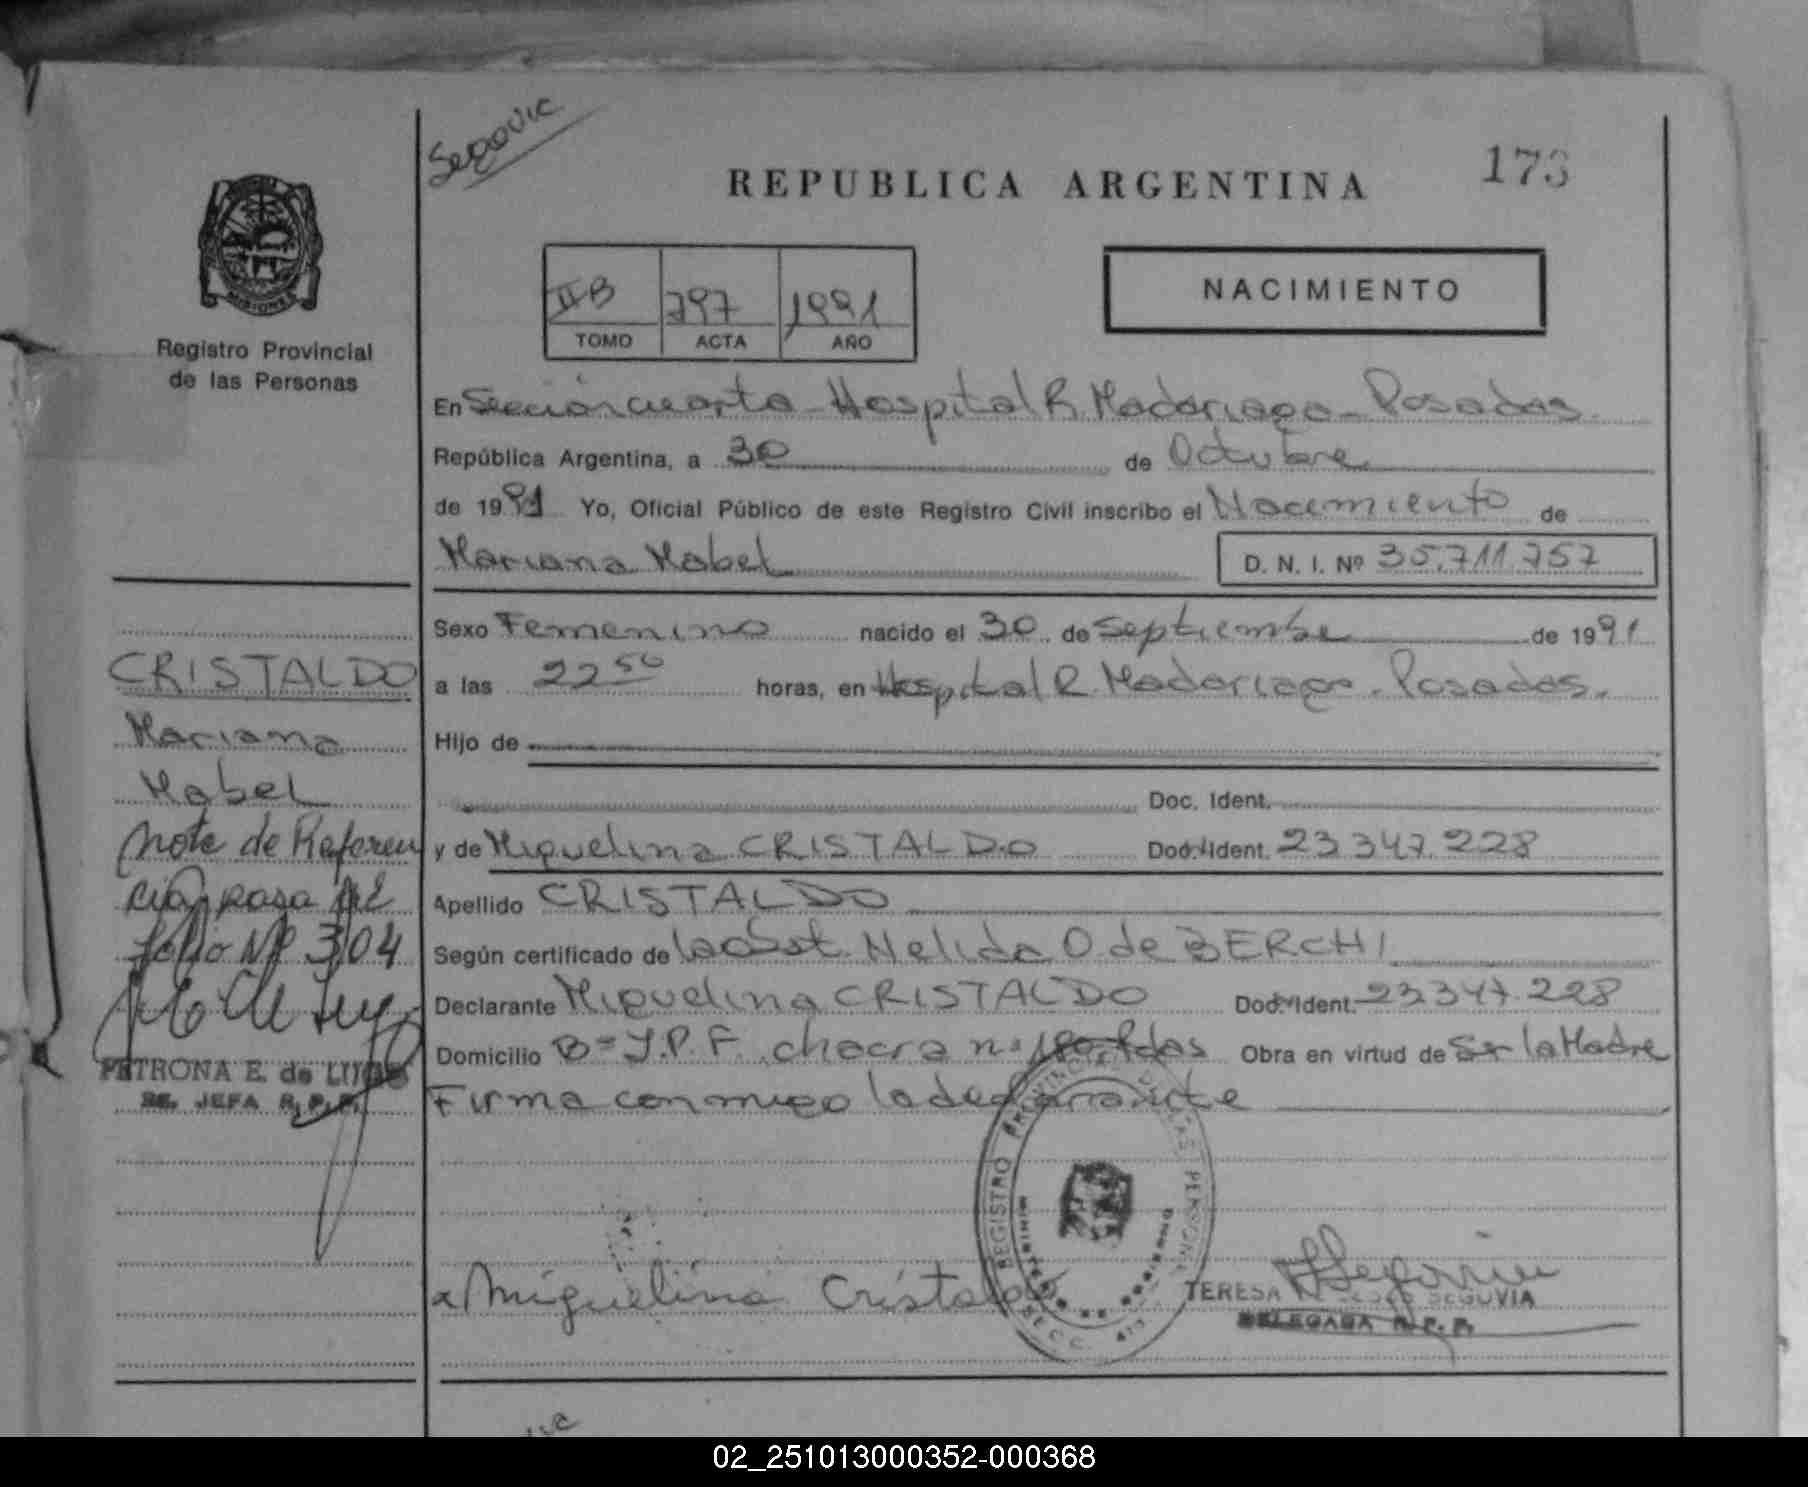 Segovic
REPUBLICA ARGENTINA
173
MISIONES
Registro Provincial
de las Personas
II B 797 1991
TOMO ACTA AÑO
NACIMIENTO
En Sección cuarta - Hospital R. Madariaga - Posadas
República Argentina, a 30 de Octubre
de 1991 Yo, Oficial Público de este Registro Civil inscribo el Nacimiento de
Mariana Mabel D. N. I. Nº 35.711.757
Sexo Femenino nacido el 30 de Septiembre de 1991
a las 22 50 horas, en Hospital R. Madariaga. Posadas.
Hijo de
Doc. Ident.
y de Miguelina CRISTALDO Doc. Ident. 23347.228
Apellido CRISTALDO
Según certificado de la obst. Nelida O. de BERCHI
Declarante Miguelina CRISTALDO Doc. Ident. 23347.228
Domicilio Bº Y.P.F. chacra nº Pdas Obra en virtud de Ser la Madre
Firma conmigo la declarante
CRISTALDO
Mariana
Mabel
Nota de Referen
cia pasa al
folio Nº 304
PETRONA E. de LUGO
SE. JEFA R.P.P.
REGISTRO PROVINCIAL DE LAS PERSONAS
Miguelina Cristaldo
TERESA SEGOVIA
DELEGADA R.P.P.
02_251013000352-000368